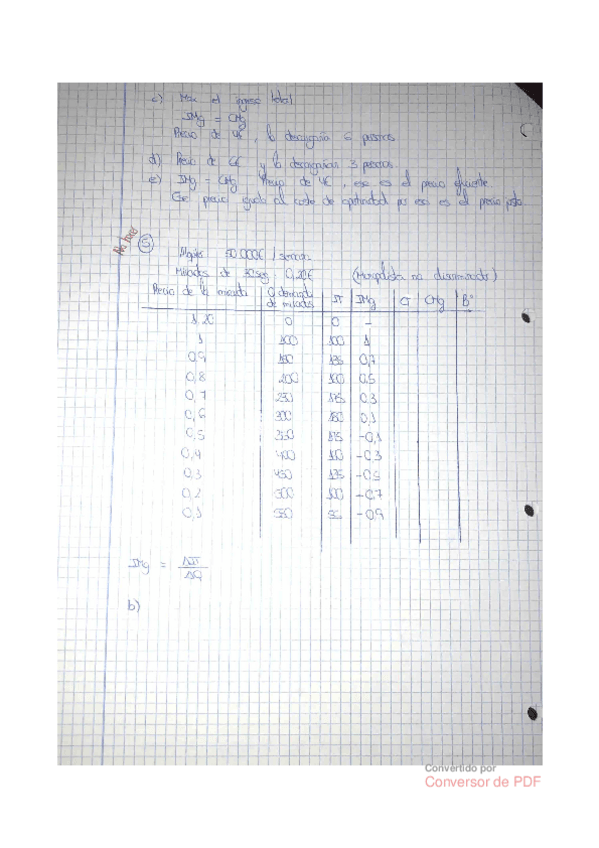 c) Max el ingreso total
IMg = CMg
Precio de 4€, lo desayunarán 6 personas
d) Precio de 6€ y lo desayunarían 3 personas.
e) IMg = CMg Precio de 4€, ese es el precio eficiente.
Ese precio iguala al coste de oportunidad pues ese es el precio
No hace
5
50.000€ / semana
de 30seg 0,20€ (Monopolista no discriminador)
Precio de la Q demanda IT IMg CT CMg Bº
de
1,20 0 0 -
1 100 100 1
0,9 150 135 0,7
0,8 200 160 0,5
0,7 250 175 0,3
0,6 300 180 0,1
0,5 350 175 -0,1
0,4 400 160 -0,3
0,3 450 135 -0,5
0,2 500 100 -0,7
0,1 550 55 -0,9
IMg = ΔIT
ΔQ
b)
Convertido por
Conversor de PDF